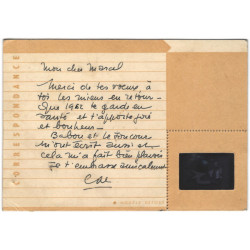 CORRESPONDANCE
Mon cher Marcel
Merci de tes voeux, à
toi les miens en retour.
Que 1962 te garde en
santé et t'apporte joie
et bonheur.
Babou et le
m'ont écrit aussi et
cela m'a fait bien plaisir
Je t'embrasse amicalement